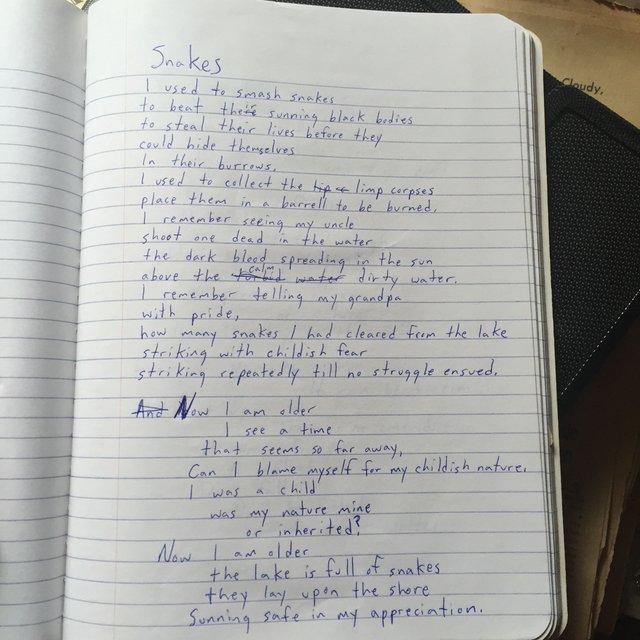 Snakes
I used to smash snakes
to beat their sunning black bodies
to steal their lives before they
could hide themselves
In their burrows.
I used to collect the limp corpses
place them in a barrell to be burned.
I remember seeing my uncle
shoot one dead in the water
the dark blood spreading in the sun
above the calm dirty water.
I remember telling my grandpa
with pride,
how many snakes I had cleared from the lake
striking with childish fear
striking repeatedly till no struggle ensued.
And Now I am older
I see a time
that seems so far away,
Can I blame myself for my childish nature.
I was a child
was my nature mine
or inherited?
Now I am older
the lake is full of snakes
they lay upon the shore
Sunning safe in my appreciation.
Cloudy,